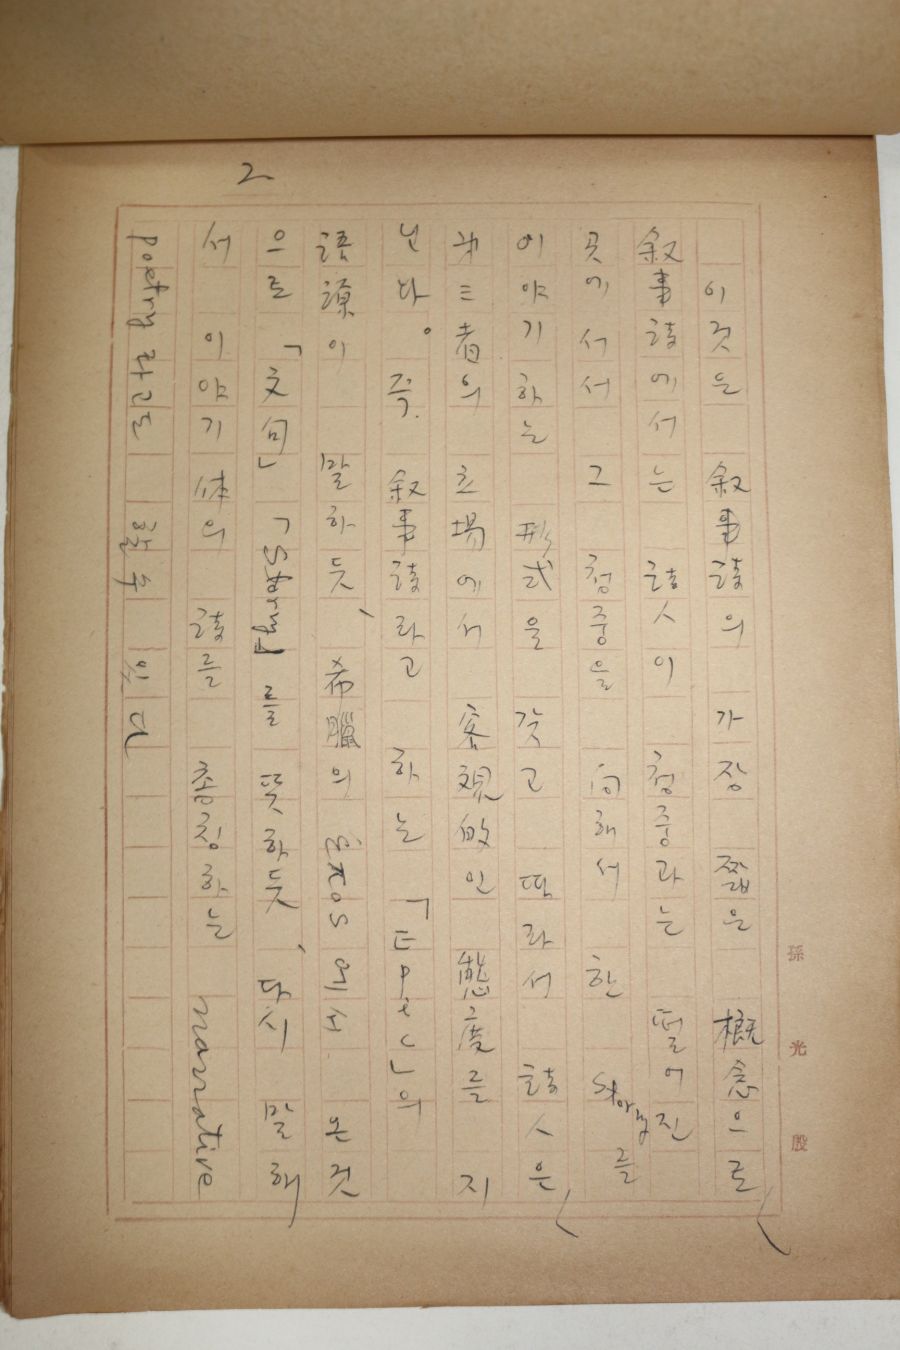 2
이것은 敍事詩의 가장 짧은 槪念으로
敍事詩에서는 詩人이 청중과는 떨어진
곳에 서서 그 청중을 向해서 한 story를
이야기하는 形式을 갖고 따라서 詩人은
第三者의 立場에서 客觀的인 態度를 지
닌다. 즉. 敍事詩라고 하는 「Epic」의
語源이 말하듯, 希臘의 에서 온것
으로 「文句」「Story」를 뜻하듯, 다시 말해
서 이야기体의 詩를 총칭하는 narrative
poetry라고도 할수 있다
孫光殷